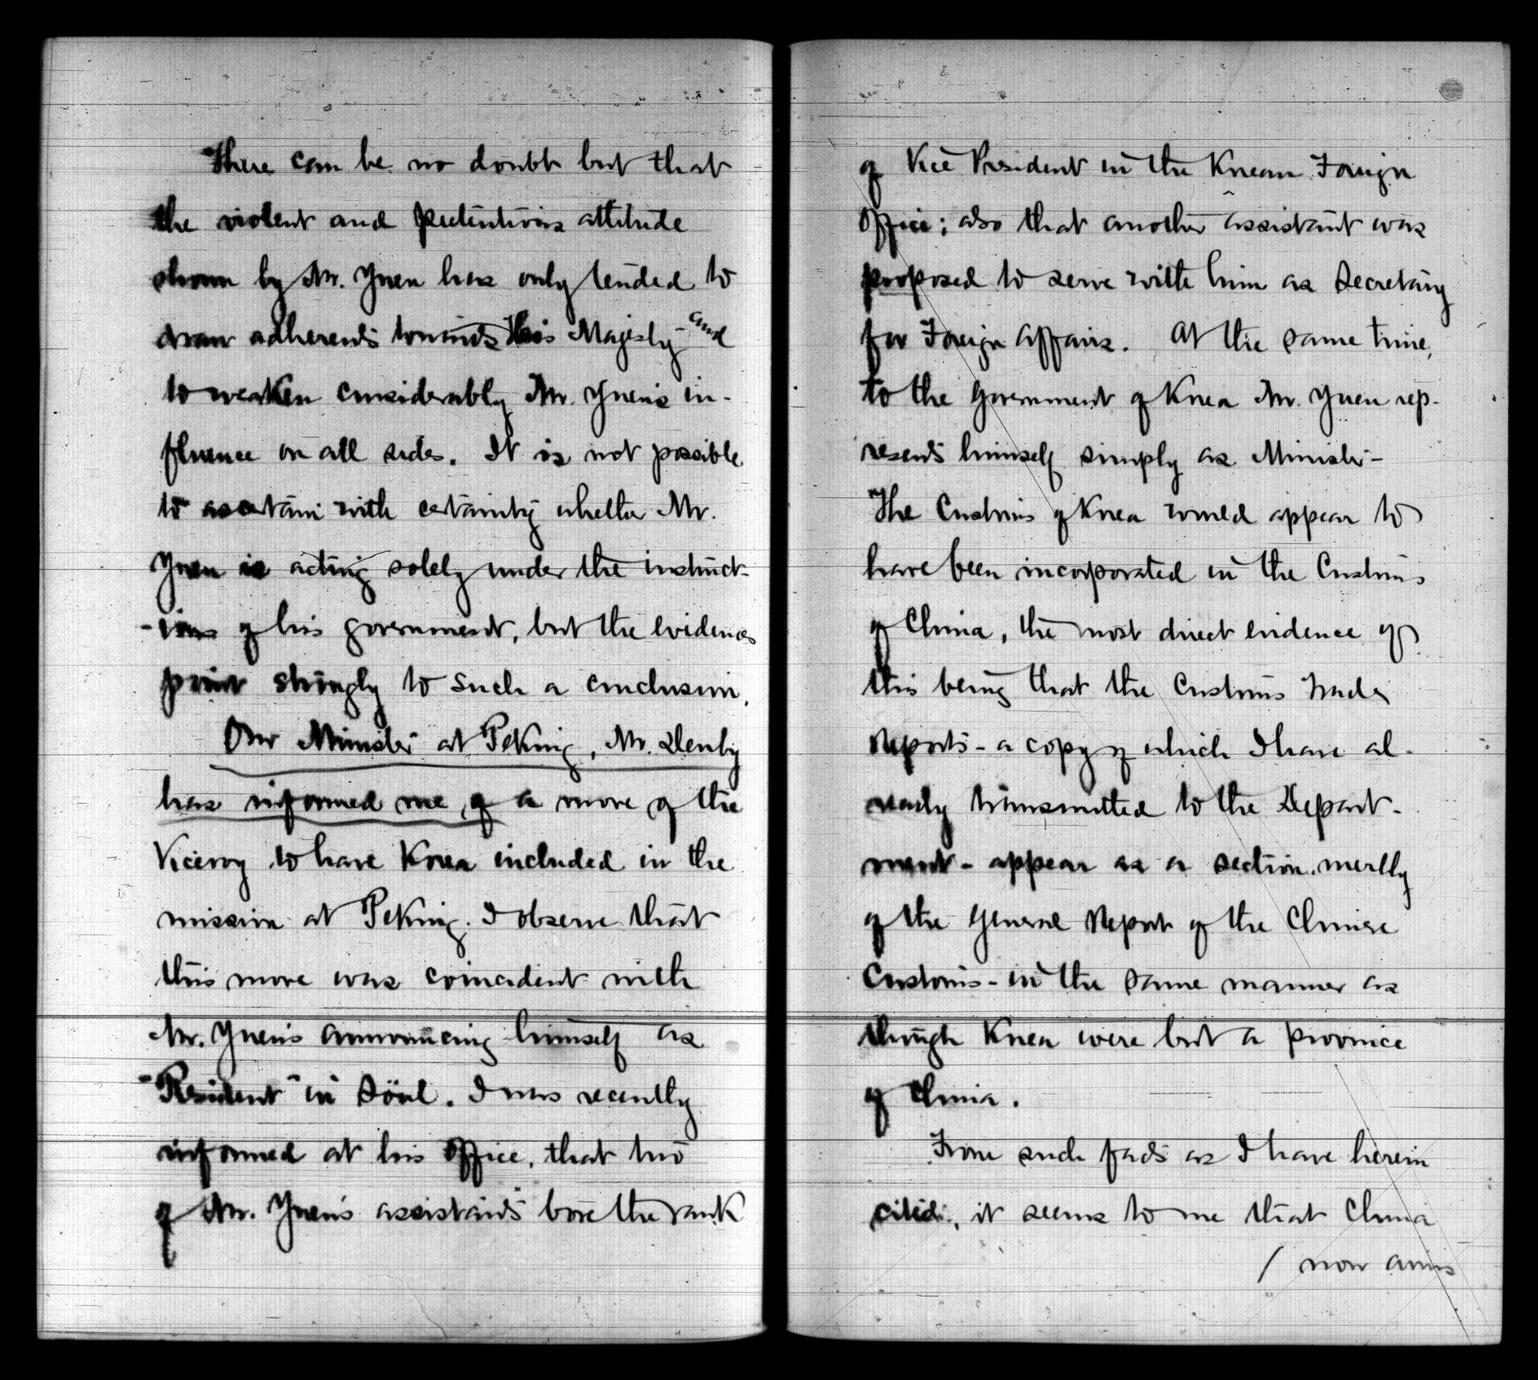 There can be no doubt but that
the violent and pretentious attitude
shown by Mr. Yuen has only tended to
draw adherents towards His Majesty and
to weaken considerably Mr. Yuen's in-
fluence on all sides. It is not possible
to ascertain with certainty whether Mr.
Yuen is acting solely under the instruct-
-ions of his government, but the evidences
point strongly to such a conclusion.
Our Minister at Peking, Mr. Denby
has informed me of a move of the
Viceroy to have Korea included in the
mission at Peking. I observe that
this move was coincident with
Mr. Yuen's announcing himself as
"Resident" in Söul. I was recently
informed at his office, that two
of Mr. Yuen's assistants bore the rank
of Vice President in the Korean Foreign
Office; also that another assistant was
proposed to serve with him as Secretary
for Foreign Affairs. At the same time,
to the Government of Korea Mr. Yuen rep-
resents himself simply as Minister -
The Customs of Korea would appear to
have been incorporated in the Customs
of China, the most direct evidence of
this being that the Customs Trade
Reports - a copy of which I have al-
ready transmitted to the Depart-
ment - appear as a section merely
of the General Report of the Chinese
Customs - in the same manner as
though Korea were but a province
of China.
From such facts as I have herein
cited, it seems to me that China
/ now aims